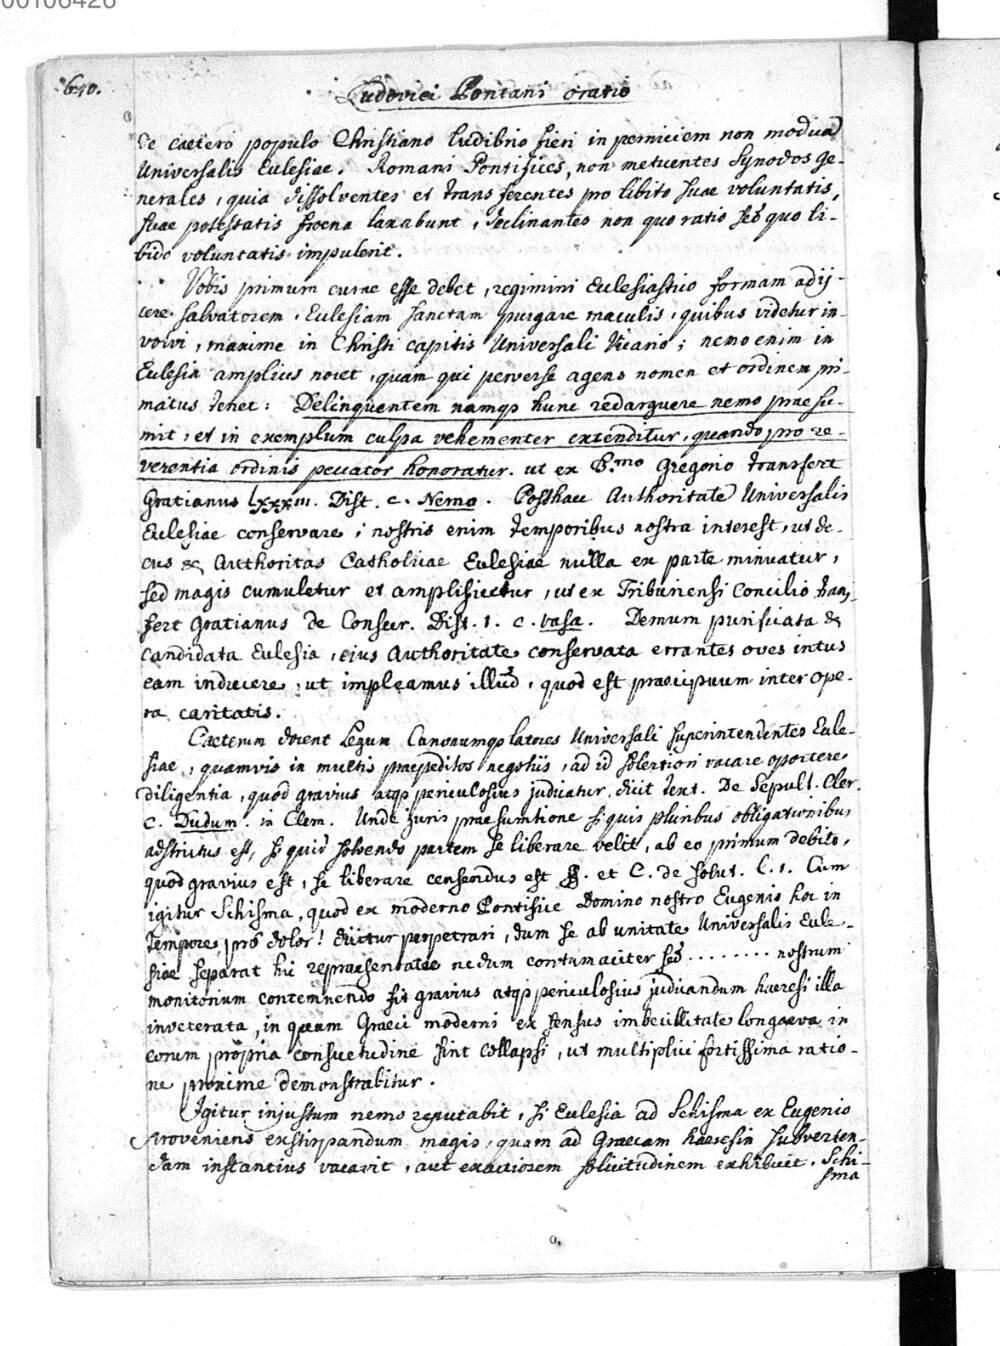 00106426
640.
Ludovici Pontani oratio
de caetero populo Christiano ludibrio fieri in perniciem non modicā
Universalis Eulesiae. Romani Pontifices, non metuentes Synodos Ge-
nerales, quia dissolventes et transferentes pro libito suae voluntatis,
suae potestatis froena laxabunt, declinantes non quo ratio sed quo li-
bido voluntatis impulerit.
Vobis primum curae esse debet, regimini Eulesiastico formam adij-
cere salvatorem. Eulesiam sanctam purgare maculis, quibus videtur in-
volvi, maxime in Christi capitis Universali Vicario; nemo enim in
Eulesia amplius nocet, quam qui perverse agens nomen et ordinem pri-
matus tenet: Delinquentem namqȝ hunc redarguere nemo praesu-
mit, et in exemplum culpa vehementer extenditur, quando pro re-
verentia ordinis peccator honoratur. ut ex B.mo Gregorio transfert
Gratianus lxxxiii. Dist. c. Nemo. Posthac Authoritate Universalis
Eulesiae conservare, nostris enim temporibus nostra interest, ut de-
cus & Authoritas Catholicae Eulesiae nulla ex parte minuatur,
sed magis cumuletur et amplificetur, ut ex Triburiensi Concilio tran,
sfert Gratianus de Consecr. Dist. 1. c. vasa. Demum purificata &
candidata Eulesia, eius Authoritate conservata errantes oves intus
eam inducere, ut impleamus illud, quod est praecipuum inter ope-
ra caritatis.
Caeterum docent Legum Canonumqȝ latores Universali superintendentes Eule-
siae, quamvis in multis praepeditos negotiis, ad id solertiori vacare oportere
diligentia, quod gravius atqȝ periculosius judicatur, dicit text. De Sepult. Cler.
c. Dudum. in Clem. Unde juris praesumtione si quis pluribus obligationibus
adstrictus est, si quid solvendo partem se liberare velit, ab eo primum debito,
quod gravius est, se liberare censendus est ff. et C. de solut. l. 1. Cum
igitur Schisma, quod ex moderno Pontifice Domino nostro Eugenio hoc in
tempore, prô dolor! dicitur perpetrari, dum se ab unitate Universalis Eule-
siae separat hic repraesentatae nedum contumaciter sed ........ nostrum
monitorium contemnendo sit gravius atqȝ periculosius judicandum haeresi illa
inveterata, in quam Graeci moderni ex sensus imbecillitate longaeva in
eorum propria consuetudine sint collapsi, ut multiplici fortissima ratio-
ne proxime demonstrabitur.
Igitur injustum nemo reputabit, si Eulesia ad Schisma ex Eugenio
proveniens exstirpandum magis, quam ad Graecam haeresin subverten-
dam instantius vacarit, aut exactiorem solicitudinem exhibuit. Schi-
sma